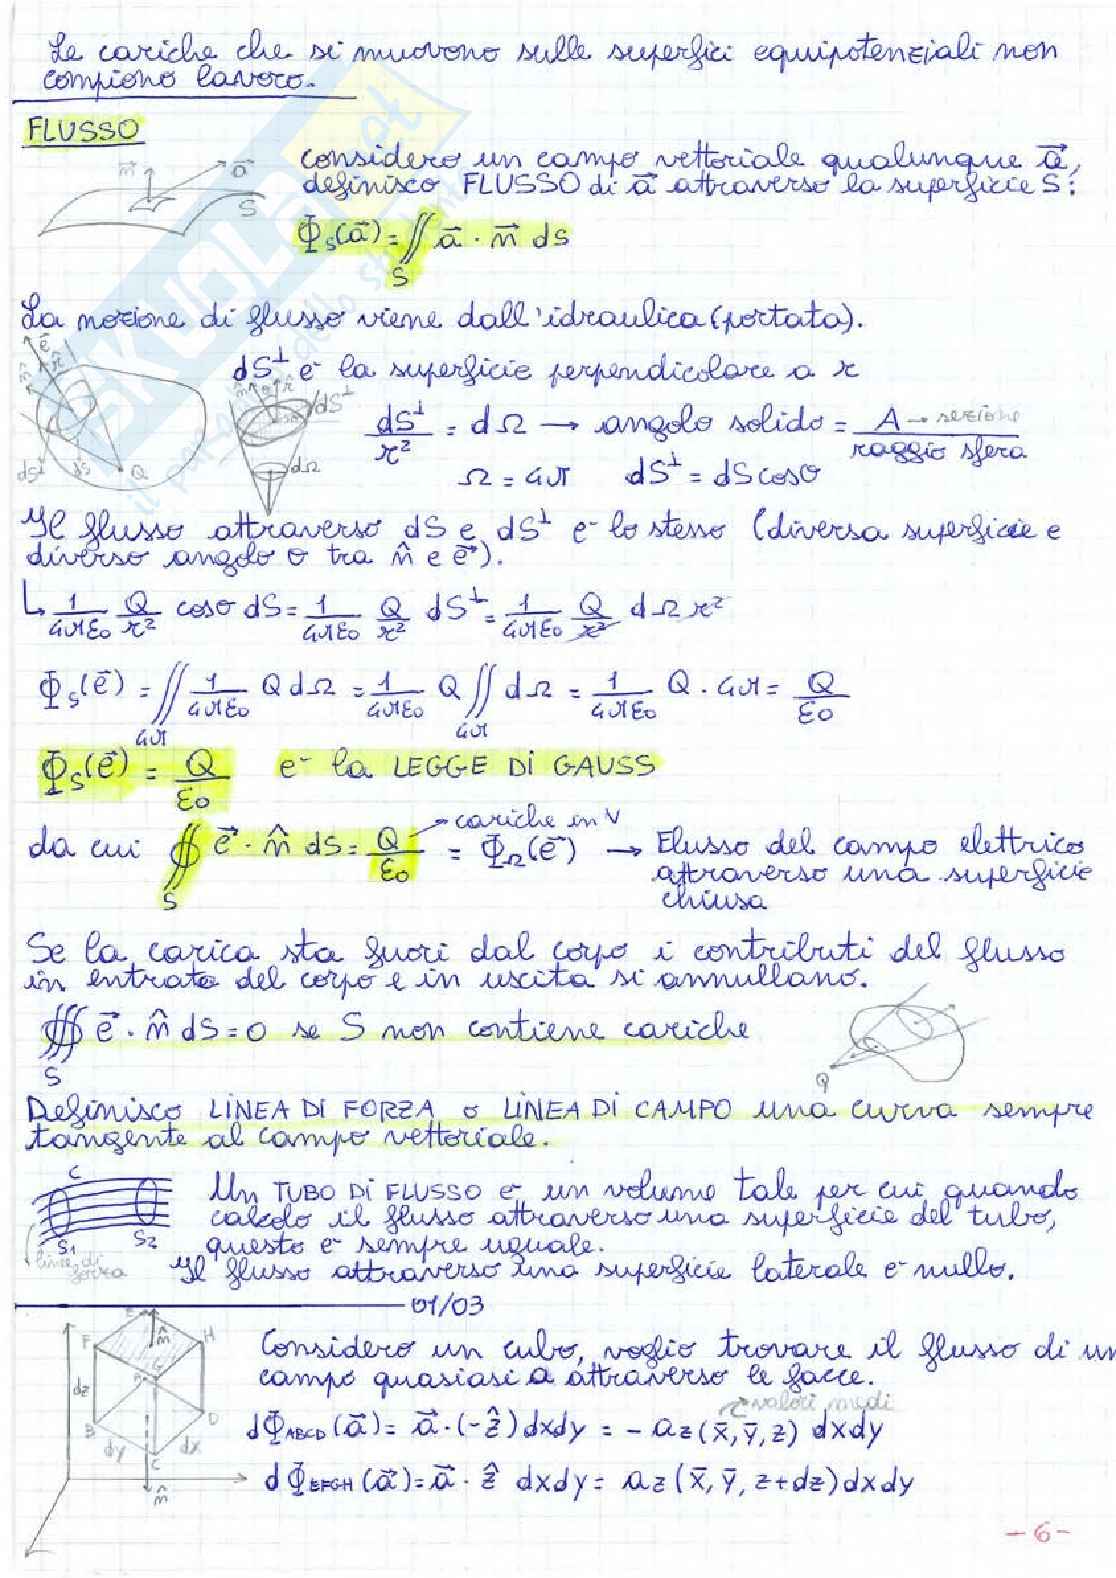 Le cariche che si muovono sulle superfici equipotenziali non
compiono lavoro.
FLUSSO
considero un campo vettoriale qualunque a⃗,
definisco FLUSSO di a⃗ attraverso la superficie S:
n⃗ a⃗ S
Φs(a⃗) = ∬ a⃗ · n⃗ ds
S
La nozione di flusso viene dall'idraulica (portata).
dS⊥ è la superficie perpendicolare a r
dS⊥/r² = dΩ → angolo solido = A → sezione / raggio sfera
Ω = 4π dS⊥ = dS cosθ
dS⊥ dS Q
n̂ θ r̂ dS⊥ dΩ
Il flusso attraverso dS e dS⊥ è lo stesso (diversa superficie e
diverso angolo θ tra n̂ e e⃗).
↳ 1/4πε₀ Q/r² cosθ dS = 1/4πε₀ Q/r² dS⊥ = 1/4πε₀ Q/r² dΩ r²
Φs(e⃗) = ∬ 1/4πε₀ Q dΩ = 1/4πε₀ Q ∬ dΩ = 1/4πε₀ Q · 4π = Q/ε₀
4π 4π
Φs(e⃗) = Q/ε₀ è la LEGGE DI GAUSS
da cui ∯ e⃗ · n̂ ds = Q/ε₀ → cariche in V = ΦΩ(e⃗) → Flusso del campo elettrico
attraverso una superficie
S chiusa
Se la carica sta fuori dal corpo i contributi del flusso
in entrata del corpo e in uscita si annullano.
∰ e⃗ · n̂ dS = 0 se S non contiene cariche
S
Q
Definisco LINEA DI FORZA o LINEA DI CAMPO una curva sempre
tangente al campo vettoriale.
C S1 S2
linee di
forza
Un TUBO DI FLUSSO è un volume tale per cui quando
calcolo il flusso attraverso una superficie del tubo,
questo è sempre uguale.
Il flusso attraverso una superficie laterale è nullo.
01/03
E n̂ F H G
dz A B D
dy dx C
n̂
Considero un cubo, voglio trovare il flusso di un
campo quasiasi a attraverso le facce.
valori medi
dΦABCD(a⃗) = a⃗ · (-ẑ) dxdy = - az(x̄, ȳ, z) dxdy
dΦEFGH(a⃗) = a⃗ · ẑ dxdy = az(x̄, ȳ, z+dz) dxdy
-6-
SKUOLA.net